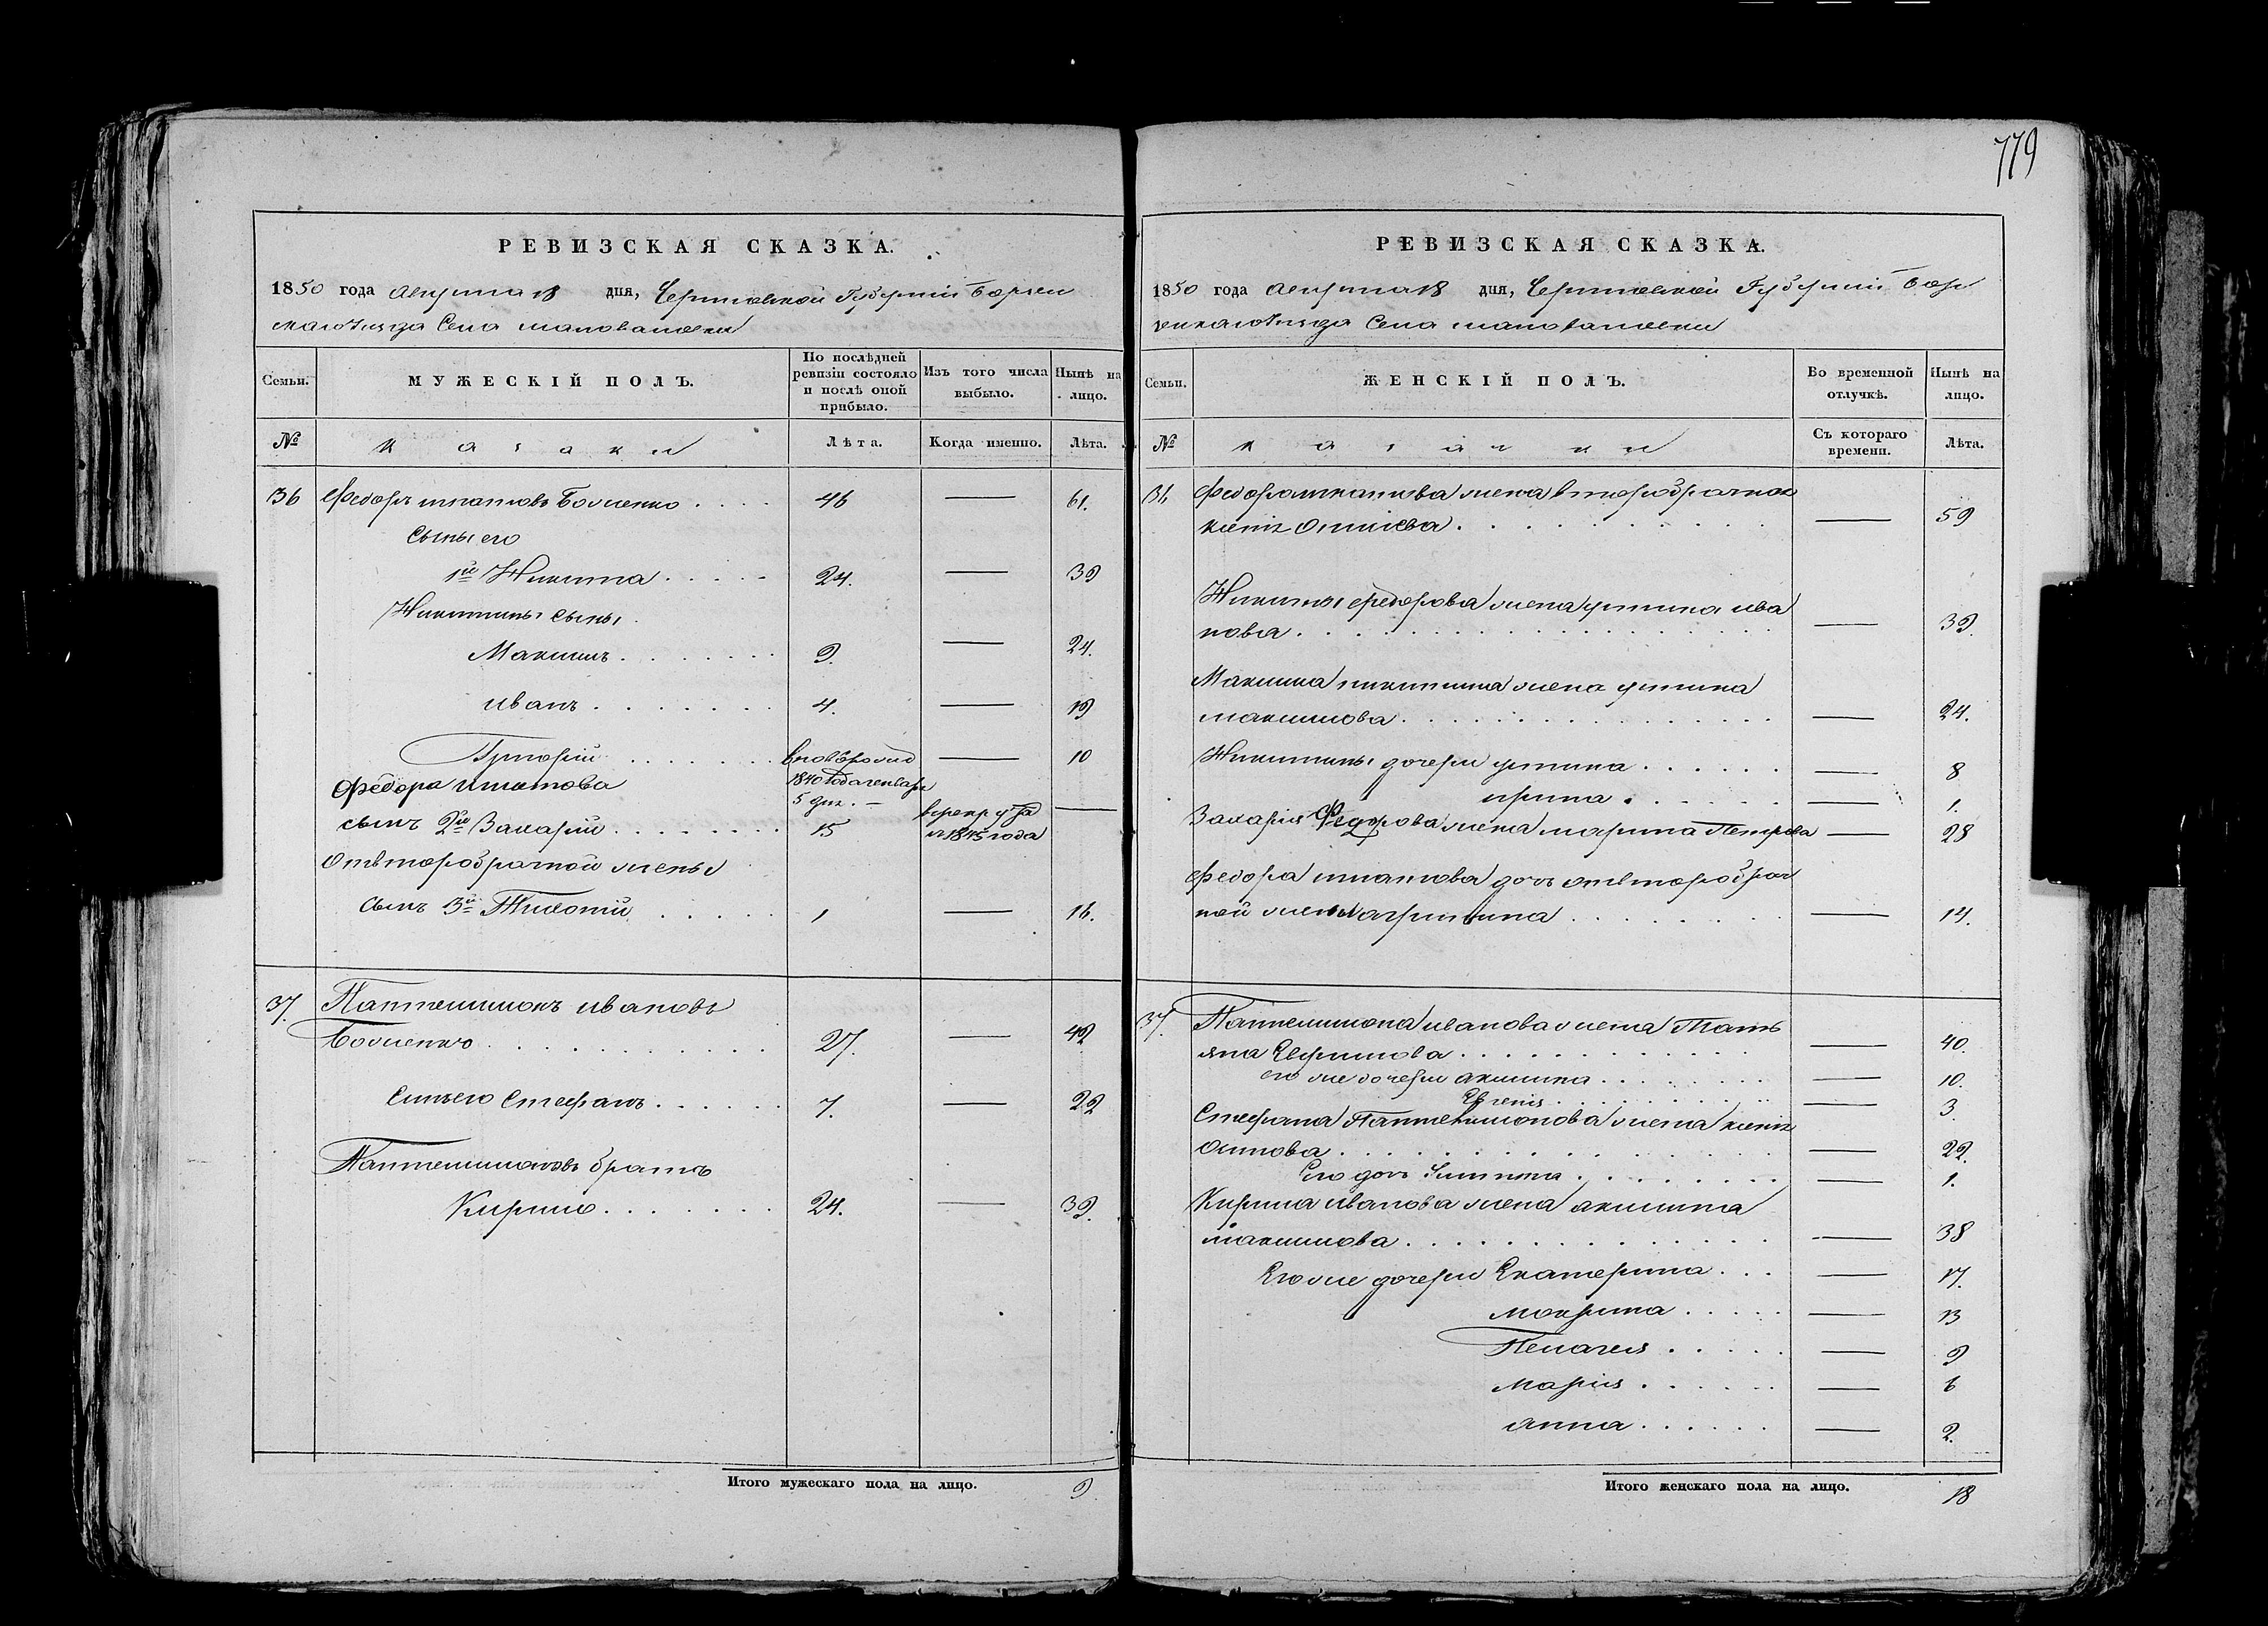 779
РЕВИЗСКАЯ СКАЗКА.
1850 года Августа 18 дня, Черниговской Губернии Борзен
скаго уезда Села Шаповаловки
Семьи. МУЖЕСКІЙ ПОЛЪ. По послѣдней ревизіи состояло и послѣ оной прибыло. Изъ того числа выбыло. Нынѣ на лицо.
№ Казаки Лѣта. Когда именно. Лѣта.
36 Федоръ Игнатовъ Боженко 46 — 61.
Сыны его
1й Никита 24. — 39
Никитины сыны
Максимъ 9. — 24.
Иванъ 4. — 19
Григорій вновь рожд — 10
1840 года генваря
5 дня. —
Федора Игнатова
сынъ 2й Захарій 15 в рекрута —
1845 года
Отъ второбрачной жены
сынъ 3й Тихоній 1 — 16.
37. Пантелимонъ Ивановъ
Боженко 27. — 42
Сынъ его Стефанъ 7. — 22
Пантелимоновъ братъ
Кирило 24. — 39.
Итого мужескаго пола на лицо. 9
РЕВИЗСКАЯ СКАЗКА.
1850 года Августа 18 дня, Черниговской Губернии Бор
зенскаго уезда Села Шаповаловки
Семьи. ЖЕНСКІЙ ПОЛЪ. Во временной отлучкѣ. Нынѣ на лицо.
№ Казачки Съ котораго времени. Лѣта.
36 Федора Игнатова жена второбрачная
— 59
Никиты Федорова жена устина ива
нова — 39.
Максима никитина жена устина
максимова — 24.
Никитины дочери устина — 8
ирина — 1.
Захарія Федорова жена марина Петрова — 28
Федора игнатова дочь отъ второбрач
ной жены агрипина — 14.
37. Пантелимона иванова жена Тать
яна Евфимова — 40.
его же дочери акилина — 10.
Евгенія — 3
Стефана Пантелимонова жена
— 22.
Его дочь — 1.
Кирила иванова жена акилина
максимова — 38
Его же дочери Екатерина — 17.
мокрина — 13
Пелагея — 9
марія — 6
анна — 2.
Итого женскаго пола на лицо. 18